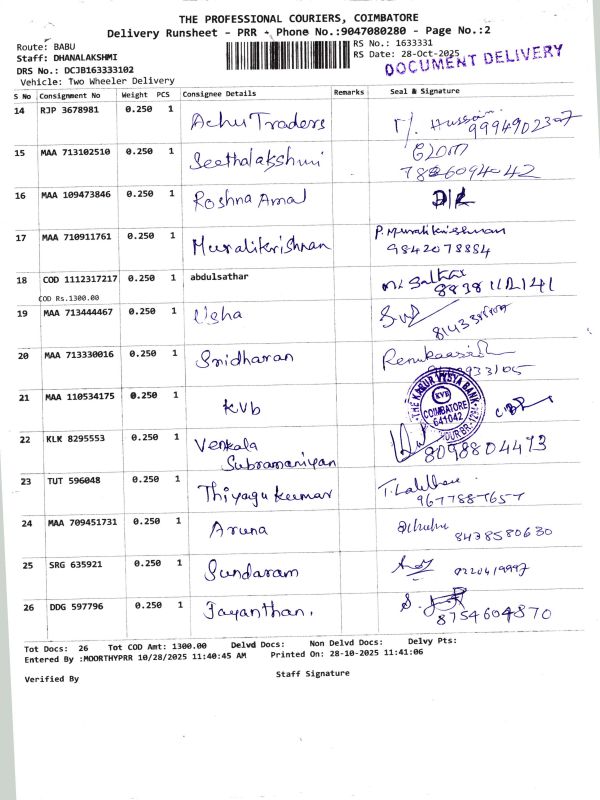 THE PROFESSIONAL COURIERS, COIMBATORE
Delivery Runsheet - PRR - Phone No.:9047080280 - Page No.:2
Route: BABU
Staff: DHANALAKSHMI
DRS No.: DCJB163333102
Vehicle: Two Wheeler Delivery
RS No.: 1633331
RS Date: 28-Oct-2025
DOCUMENT DELIVERY
S No Consignment No Weight PCS Consignee Details Remarks Seal & Signature
14 RJP 3678981 0.250 1 Achu Traders Hussain
9994902307
15 MAA 713102510 0.250 1 Seethalakshmi
16 MAA 109473846 0.250 1 Roshna Amal D/L
17 MAA 710911761 0.250 1 Muralikrishnan P. Muralikrishnan
9842078884
18 COD 1112317217 0.250 1 abdulsathar
COD Rs.1300.00
19 MAA 713444467 0.250 1 Usha
20 MAA 713330016 0.250 1 Sridharan
21 MAA 110534175 0.250 1 KVb
THE KARUR VYSYA BANK
KVB
COIMBATORE
641042
22 KLK 8295553 0.250 1 Venkata
Subramaniyan 8098804473
23 TUT 596048 0.250 1 Thiyagu kumar
9677887657
24 MAA 709451731 0.250 1 Aruna
8438580630
25 SRG 635921 0.250 1 Sundaram
26 DDG 597796 0.250 1 Jayanthan.
8754604870
Tot Docs: 26 Tot COD Amt: 1300.00 Delvd Docs: Non Delvd Docs: Delvy Pts:
Entered By :MOORTHYPRR 10/28/2025 11:40:45 AM Printed On: 28-10-2025 11:41:06
Staff Signature
Verified By